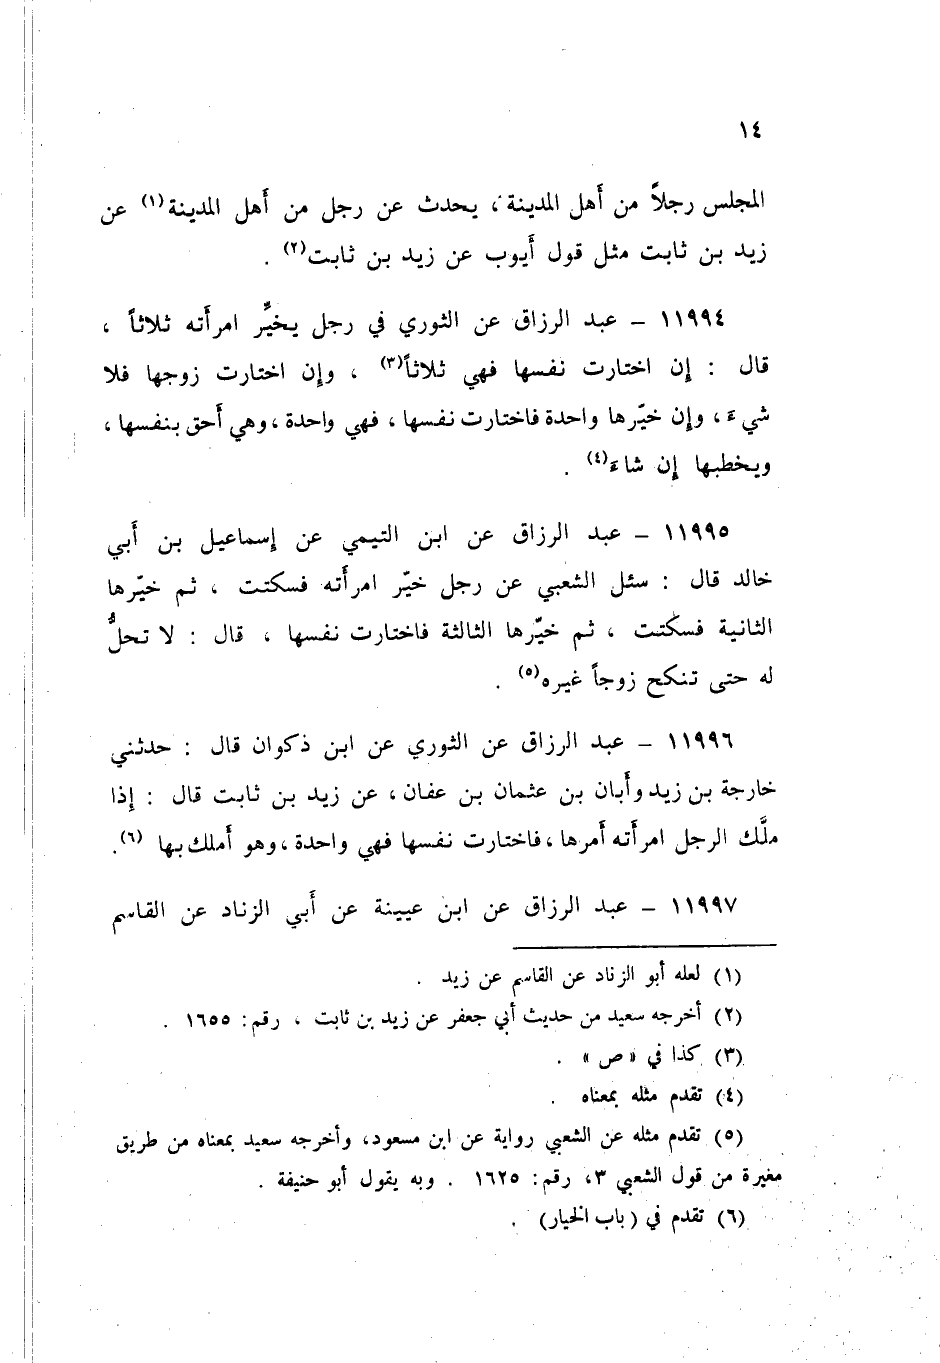 ١٤
المجلس رجلاً من أهل المدينة، يحدث عن رجل من أهل المدينة(١) عن
زيد بن ثابت مثل قول أيوب عن زيد بن ثابت(٢) .
١١٩٩٤ – عبد الرزاق عن الثوري في رجل يخيِّر امرأته ثلاثاً ،
قال : إن اختارت نفسها فهي ثلاثاً(٣) ، وإن اختارت زوجها فلا
شيءَ ، وإن خيّرها واحدة فاختارت نفسها ، فهي واحدة ، وهي أحق بنفسها ،
ويخطبها إن شاءَ(٤) .
١١٩٩٥ – عبد الرزاق عن ابن التيمي عن إسماعيل بن أبي
خالد قال : سئل الشعبي عن رجل خيّر امرأته فسكتت ، ثم خيّرها
الثانية فسكتت ، ثم خيّرها الثالثة فاختارت نفسها ، قال : لا تحلُّ
له حتى تنكح زوجاً غيره(٥) .
١١٩٩٦ – عبد الرزاق عن الثوري عن ابن ذكوان قال : حدثني
خارجة بن زيد وأبان بن عثمان بن عفان ، عن زيد بن ثابت قال : إذا
ملَّك الرجل امرأته أمرها ، فاختارت نفسها فهي واحدة ، وهو أملك بها (٦) .
١١٩٩٧ – عبد الرزاق عن ابن عيينة عن أبي الزناد عن القاسم
(١) لعله أبو الزناد عن القاسم عن زيد .
(٢) أخرجه سعيد من حديث أبي جعفر عن زيد بن ثابت ، رقم: ١٦٥٥ .
(٣) كذا في «ص» .
(٤) تقدم مثله بمعناه .
(٥) تقدم مثله عن الشعبي رواية عن ابن مسعود، وأخرجه سعيد بمعناه من طريق
مغيرة من قول الشعبي ٣، رقم: ١٦٢٥ . وبه يقول أبو حنيفة .
(٦) تقدم في (باب الخيار) .